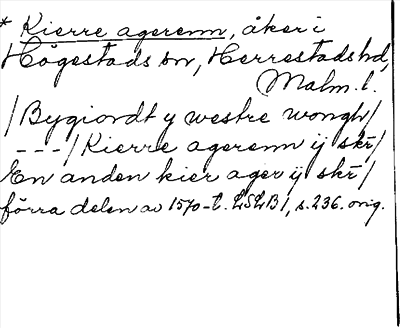 * Kierre agerenn, åker i
Högestads sn, Herrestads hd,
Malm. l.
/Bygiordt y westre wongh/
---/Kierre agerenn ij skr/
En anden kier ager ij skr/
förra delen av 1570-t. LSLB 1, s. 236. orig.